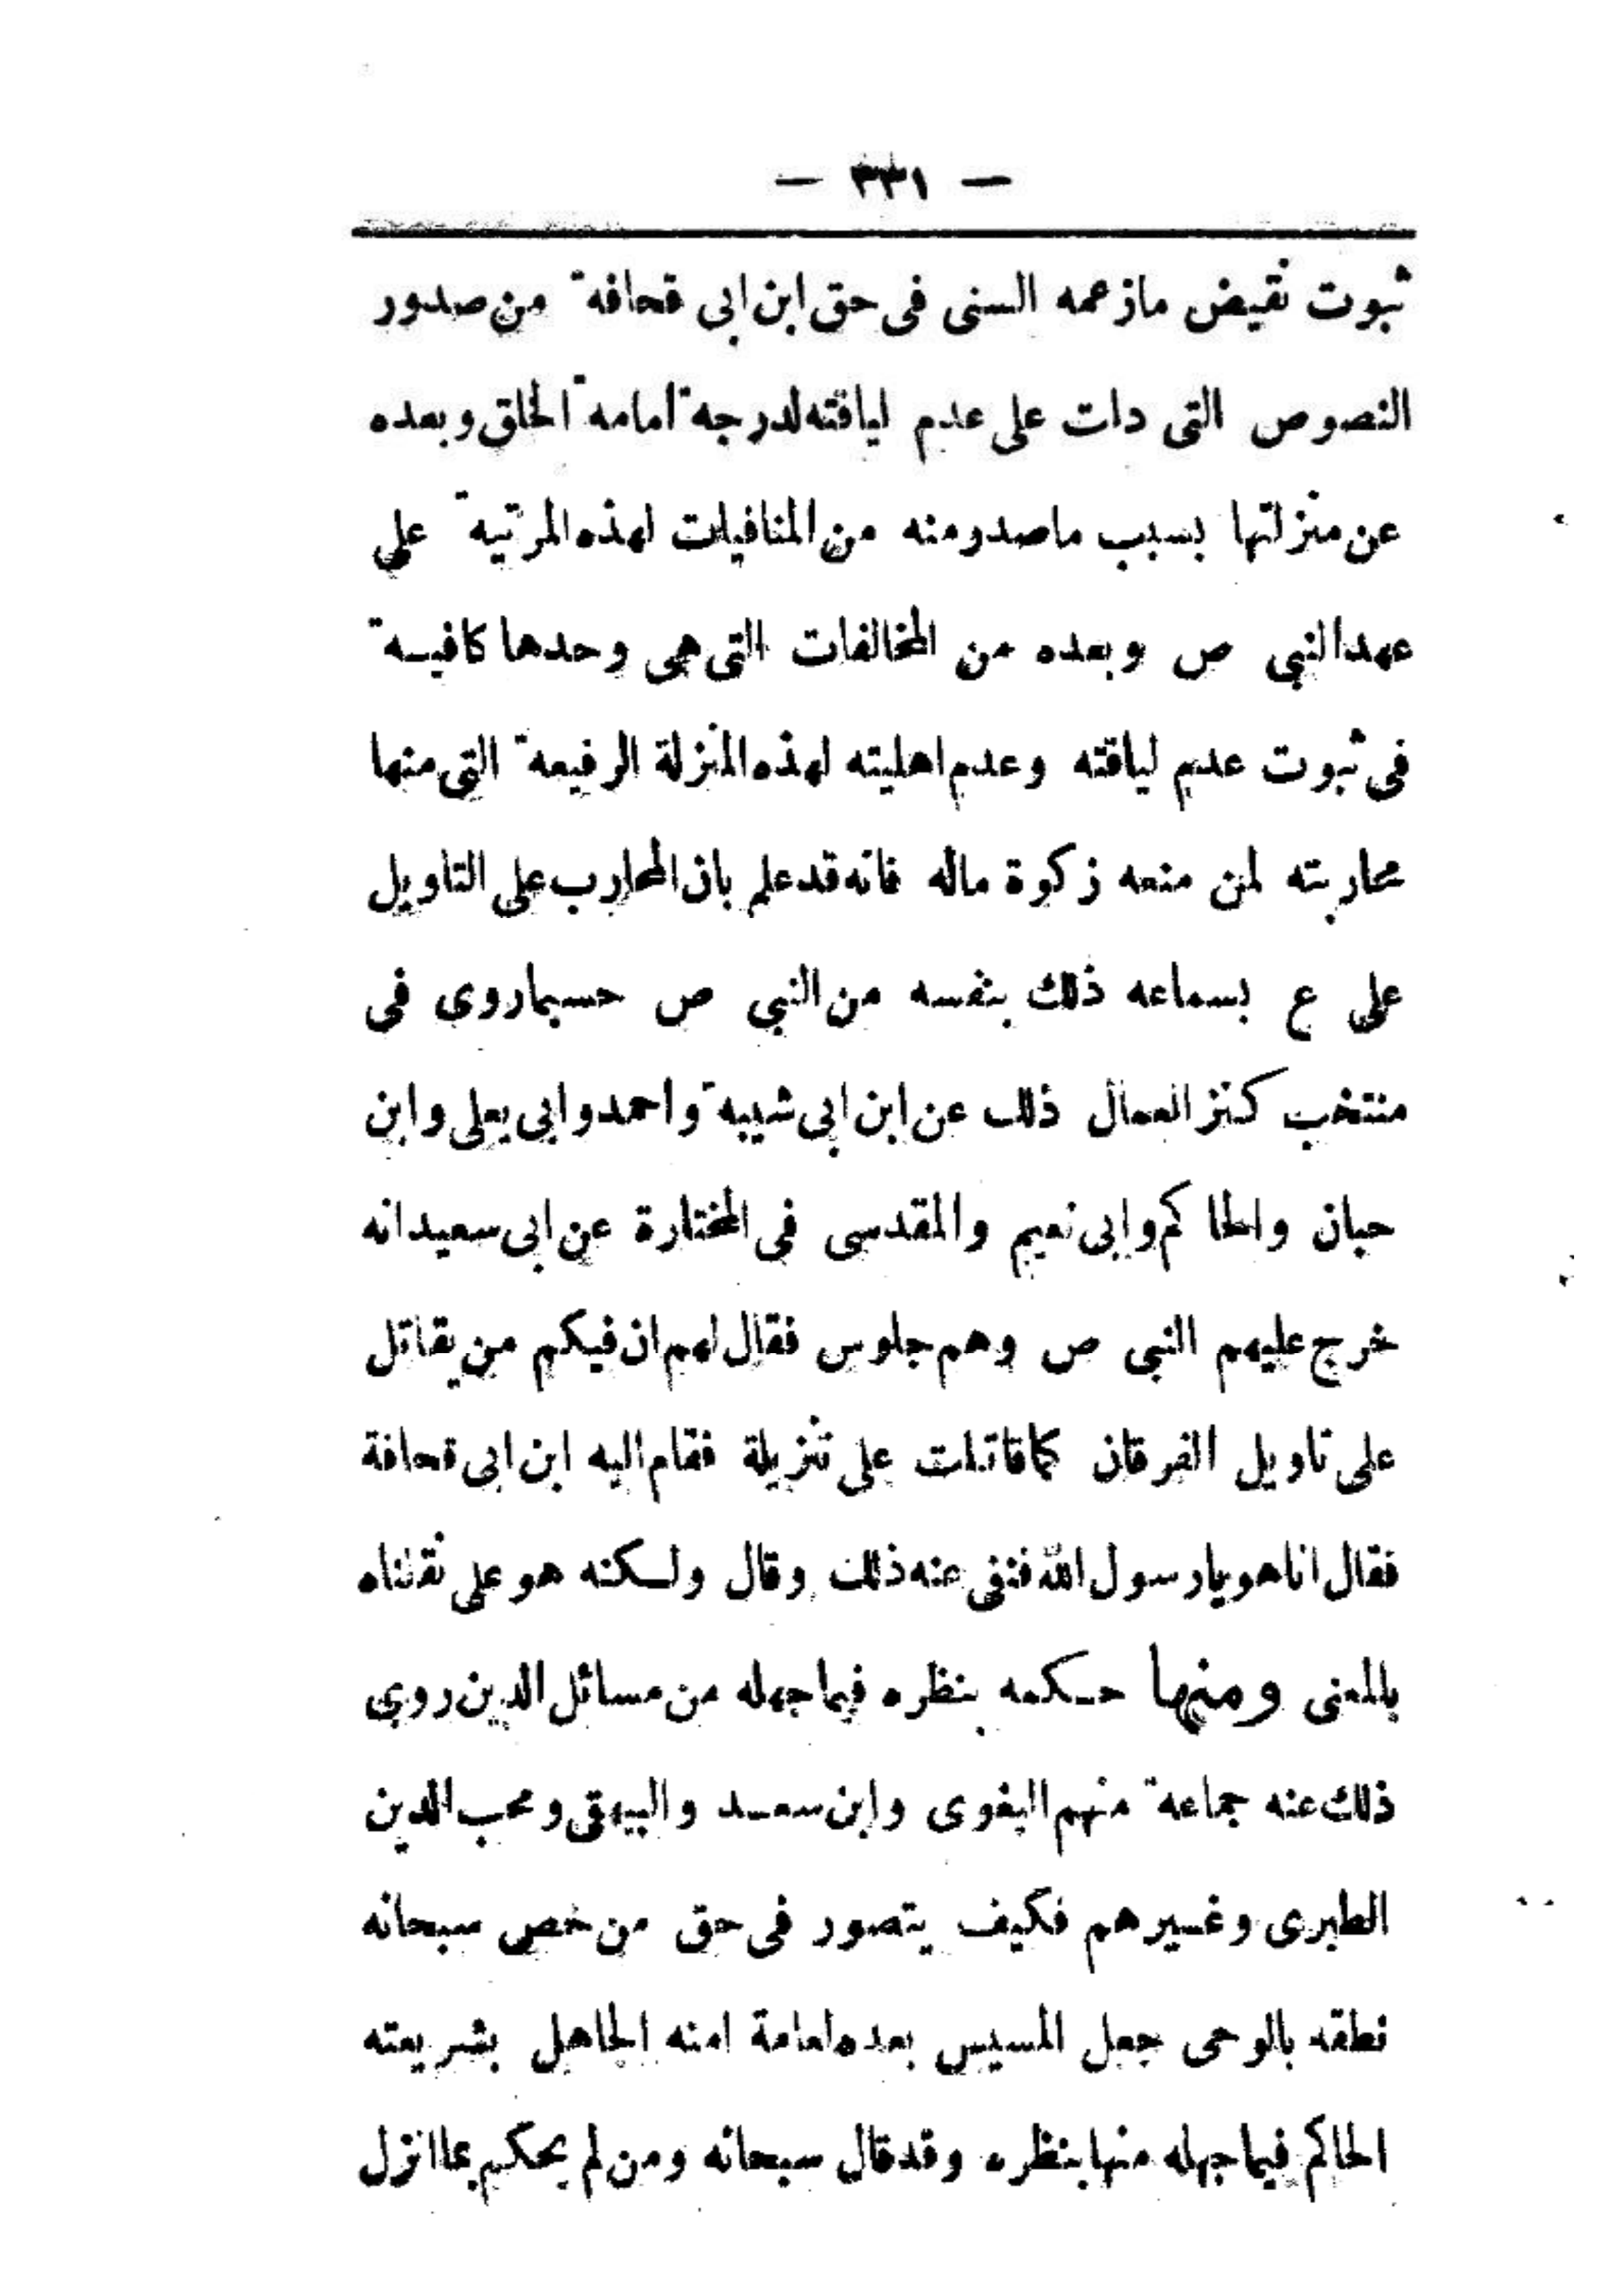 — ٣٣١ —
ثبوت نقيض مازعمه السنى فى حق ابن ابى قحافة من صدور
النصوص التى دات على عدم لياقته لدرجة امامة الخلق وبعده
عن منزلتها بسبب ماصدر منه من المنافيات لهذه المرتبة على
عهد النبى ص وبعده من المخالفات التى هى وحدها كافيـة
فى ثبوت عدم لياقته وعدم اهليته لهذه المنزلة الرفيعة التى منها
محاربته لمن منعه زكوة ماله فانه قد علم بان المحارب على التاويل
على ع بسماعه ذلك بنفسه من النبى ص حسبماروى فى
منتخب كنز العمال ذلك عن ابن ابى شيبة واحمد وابى يعلى وابن
حبان والحاكم وابى نعيم والمقدسى فى المختارة عن ابى سعيد انه
خرج عليهم النبى ص وهم جلوس فقال لهم ان فيكم من يقاتل
على تاويل الفرقان كما قاتلت على تنزيلة فقام اليه ابن ابى قحافة
فقال انا هو يارسول الله فنفى عنه ذلك وقال ولـكنه هو على نقلناه
بالمعنى ومنها حـكمه بنظره فيما جهله من مسائل الدين روى
ذلك عنه جماعة منهم البغوى وابن سعـد والبيهقى ومحب الدين
الطبرى وغـيرهم فكيف يتصور فى حق من خص سبحانه
نطقه بالوحى جعل المسيس بعده لعامة امته الجاهل بشريعته
الحاكم فيما جهله منها بنظره وقد قال سبحانه ومن لم يحكم بما انزل